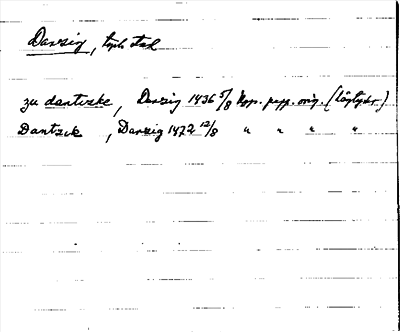 Danzig, tysk stad
zu dantzke, Danzig 1436 5/8 Kop. papp. orig. (lågtysk.)
Dantzik, Danzig 1472 12/8 " " " "